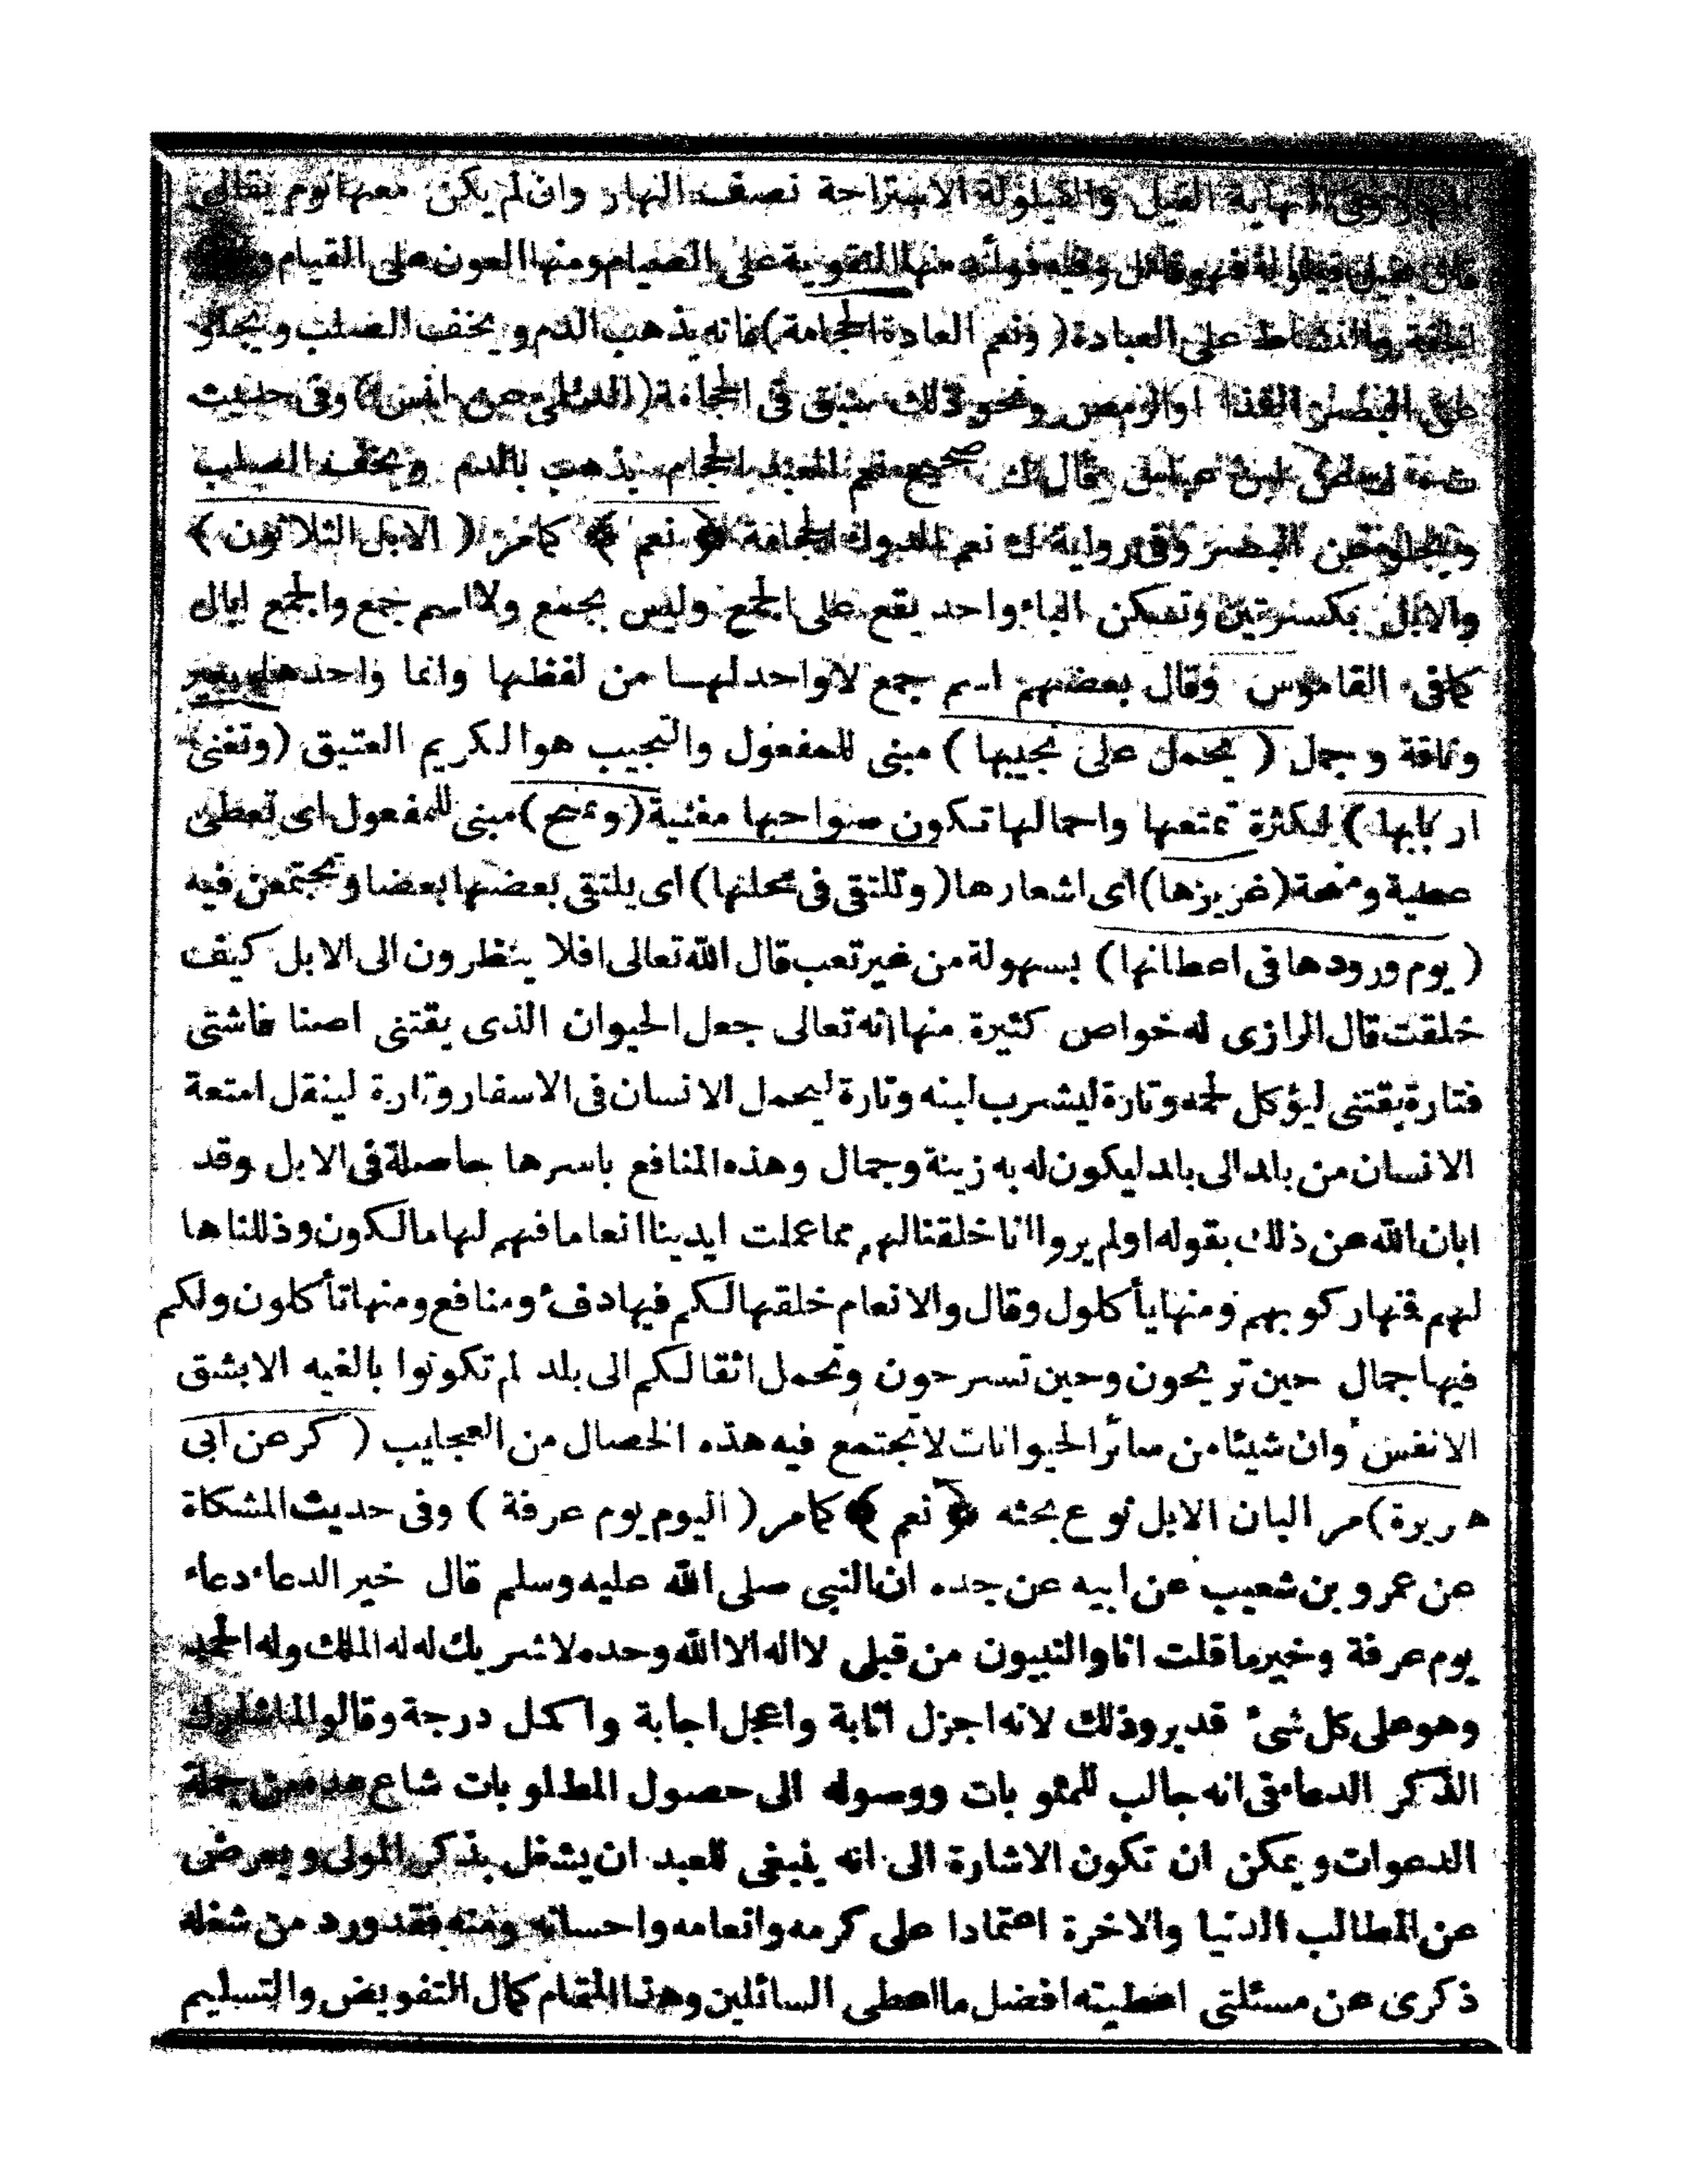 النهاية القيل والقيلولة الاستراحة نصف النهار وان لم يكن معها نوم يقال
قال يقيل قيلولة فهو قائل وفيه فوائد منها التقوية على الصيام ومنها العون على القيام
والنشاط على العبادة (ونعم العادة الحجامة) فانه يذهب الدم ويخف الصلب ويجلو
القذا او الرمص ونحو ذلك سبق فى الحجامة (الديلى عن انس) وفى حديث
ابن عباس وقال ك صحيح نعم العبد الحجام يذهب بالدم ويخف الصلب
ويجلو عن البصر وفى رواية ك نعم الدواء الحجامة ﴿ نعم ﴾ كامر ( الابل الثلاثون )
والابل بكسرتين وتسكن الباء واحد يقع على الجمع وليس بجمع ولا اسم جمع والجمع ابال
كافى القاموس وقال بعضهم اسم جمع لا واحد لهـا من لفظها وانما واحدها بعير
وناقة و جمل ( يحمل على نجيبها ) مبنى للمفعول والنجيب هو الكريم العتيق (وتغنى
اربابها ) لكثرة تمتعها واجمالها تكون صواحبها مغنية (وتمنح) مبنى للمفعول اى تعطى
عطية ومنحة (غزيزها) اى اشعارها (وتلتقى فى محلنها) اى يلتقى بعضها بعضا وتجتمعن فيه
( يوم ورودها فى اعطانها ) بسهولة من غير تعب قال الله تعالى افلا ينظرون الى الابل كيف
خلقت قال الرازى له خواص كثيرة منها انه تعالى جعل الحيوان الذى يقتنى اصنا فاشتى
فتارة يقتنى ليؤكل لحمه وتارة ليشرب لبنه وتارة ليحمل الانسان فى الاسفار وتارة لينقل امتعة
الانسان من بلد الى بلد ليكون له به زينة وجمال وهذه المنافع باسرها حاصلة فى الابل وقد
ابان الله عن ذلك بقوله اولم يروا انا خلقنا لهم مما عملت ايدينا انعاما فهم لها مالكون وذللناها
لهم فمنها ركوبهم ومنها يأكلول وقال والانعام خلقها لكم فيها دفء ومنافع ومنها تأكلون ولكم
فيها جمال حين تريحون وحين تسرحون وتحمل اثقالكم الى بلد لم تكونوا بالغيه الابشق
الانفس وان شيئا من سائر الحيوانات لا تجتمع فيه هذه الخصال من العجايب ( كر عن ابى
هريرة) مر البان الابل نوع بحثه ﴿ نعم ﴾ كامر ( اليوم يوم عرفة ) وفى حديث المشكاة
عن عمرو بن شعيب عن ابيه عن جده ان النبى صلى الله عليه وسلم قال خير الدعاء دعاء
يوم عرفة وخير ما قلت انا والنبيون من قبلى لا اله الا الله وحده لا شريك له له الملك وله الحمد
وهو على كل شئ قدير وذلك لانه اجزل اثابة واعجل اجابة واكمل درجة وقالوا لما شارك
الذكر الدعاء فى انه جالب للمثوبات ووسوله الى حصول المطلوبات شاع عده من جملة
الدعوات ويمكن ان تكون الاشارة الى انه ينبغى للعبد ان يشغل بذكر المولى ويعرض
عن المطالب الدنيا والاخرة اعتمادا على كرمه وانعامه واحسانه ومنه فقد ورد من شغله
ذكرى عن مسئلتى اعطيته افضل ما اعطى السائلين وهذا المقام كمال التفويض والتسليم